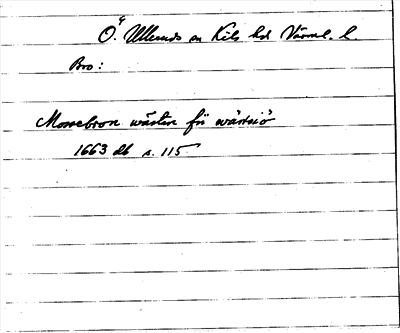 Ö. Ullerud sn Kils hd Värml. l.
Bro:
Mossebron wästen för wärsiö
1663 db s. 115